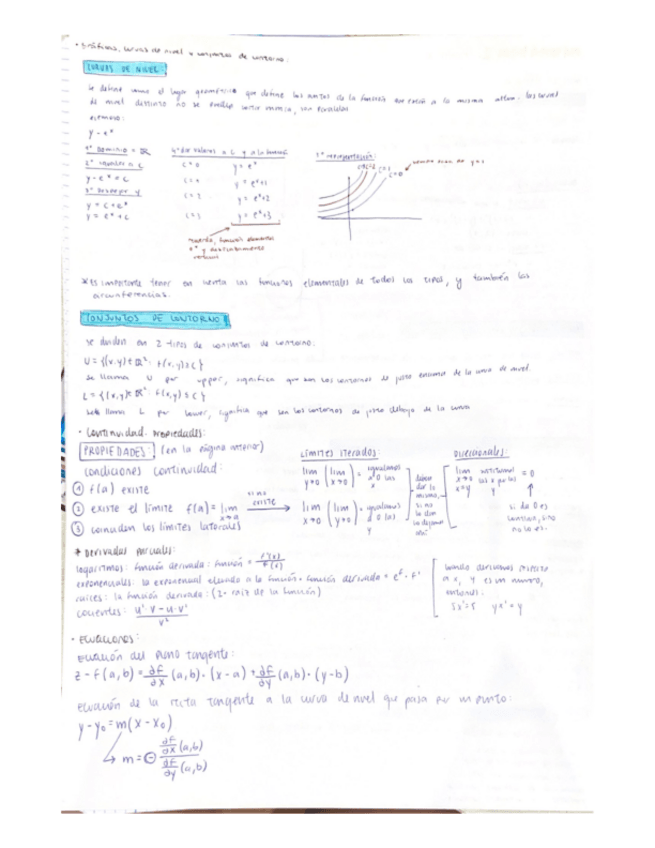 · Gráficas, curvas de nivel y conjuntos de contorno:
CURVAS DE NIVEL:
Se define como el lugar geométrico que define los puntos de la función que están a la misma altura. Las curvas
de nivel distinto no se pueden cortar nunca, son paralelas
ejemplo:
y - e^x
1º Dominio = ℝ
2º igualar a C
y - e^x = C
3º Despejar y
y = C + e^x
y = e^x + C
4º dar valores a C y a la función
C = 0 y = e^x
C = 1 y = e^x+1
C = 2 y = e^x+2
C = 3 y = e^x+3
5º representación:
C=3 C=2 C=1
C=0
* Es importante tener en cuenta las funciones elementales de todos los tipos, y también las
circunferencias.
CONJUNTOS DE CONTORNO:
se dividen en 2 tipos de conjuntos de contorno:
U = {(x,y) ∈ ℝ²: f(x,y) ≥ C}
se llama U por upper, significa que son los contornos de justo encima de la curva de nivel.
L = {(x,y) ∈ ℝ²: f(x,y) ≤ C}
se llama L por lower, significa que son los contornos de justo debajo de la curva
· Continuidad. Propiedades:
PROPIEDADES: (en la página anterior)
condiciones continuidad:
① f(a) existe
② existe el límite f(a) = lim x→a
③ coinciden los límites laterales
si no existe
Límites iterados:
lim y→0 (lim x→0) = igualamos a 0 las x
lim x→0 (lim y→0) = igualamos a 0 las y
deben dar lo mismo, si no
Direccionales:
lim x→0 x=y las x por las y = 0
si da 0 es continua, si no
no lo es.
* Derivadas parciales:
logaritmos: función derivada : función = f'(x)/f(x)
exponenciales: la exponencial elevado a la función · función derivada = e^f · f'
raíces: la función derivada : (2 · raíz de la función)
cocientes: u'·v - u·v' / v²
cuando derivamos respecto
a x, y es un número,
5x' = 5 yx' = y
· Ecuaciones:
Ecuación del plano tangente:
z - f(a,b) = ∂f/∂x (a,b) · (x-a) + ∂f/∂y (a,b) · (y-b)
Ecuación de la recta tangente a la curva de nivel que pasa por un punto:
y - y₀ = m(x - x₀)
m = - ∂f/∂x (a,b) / ∂f/∂y (a,b)